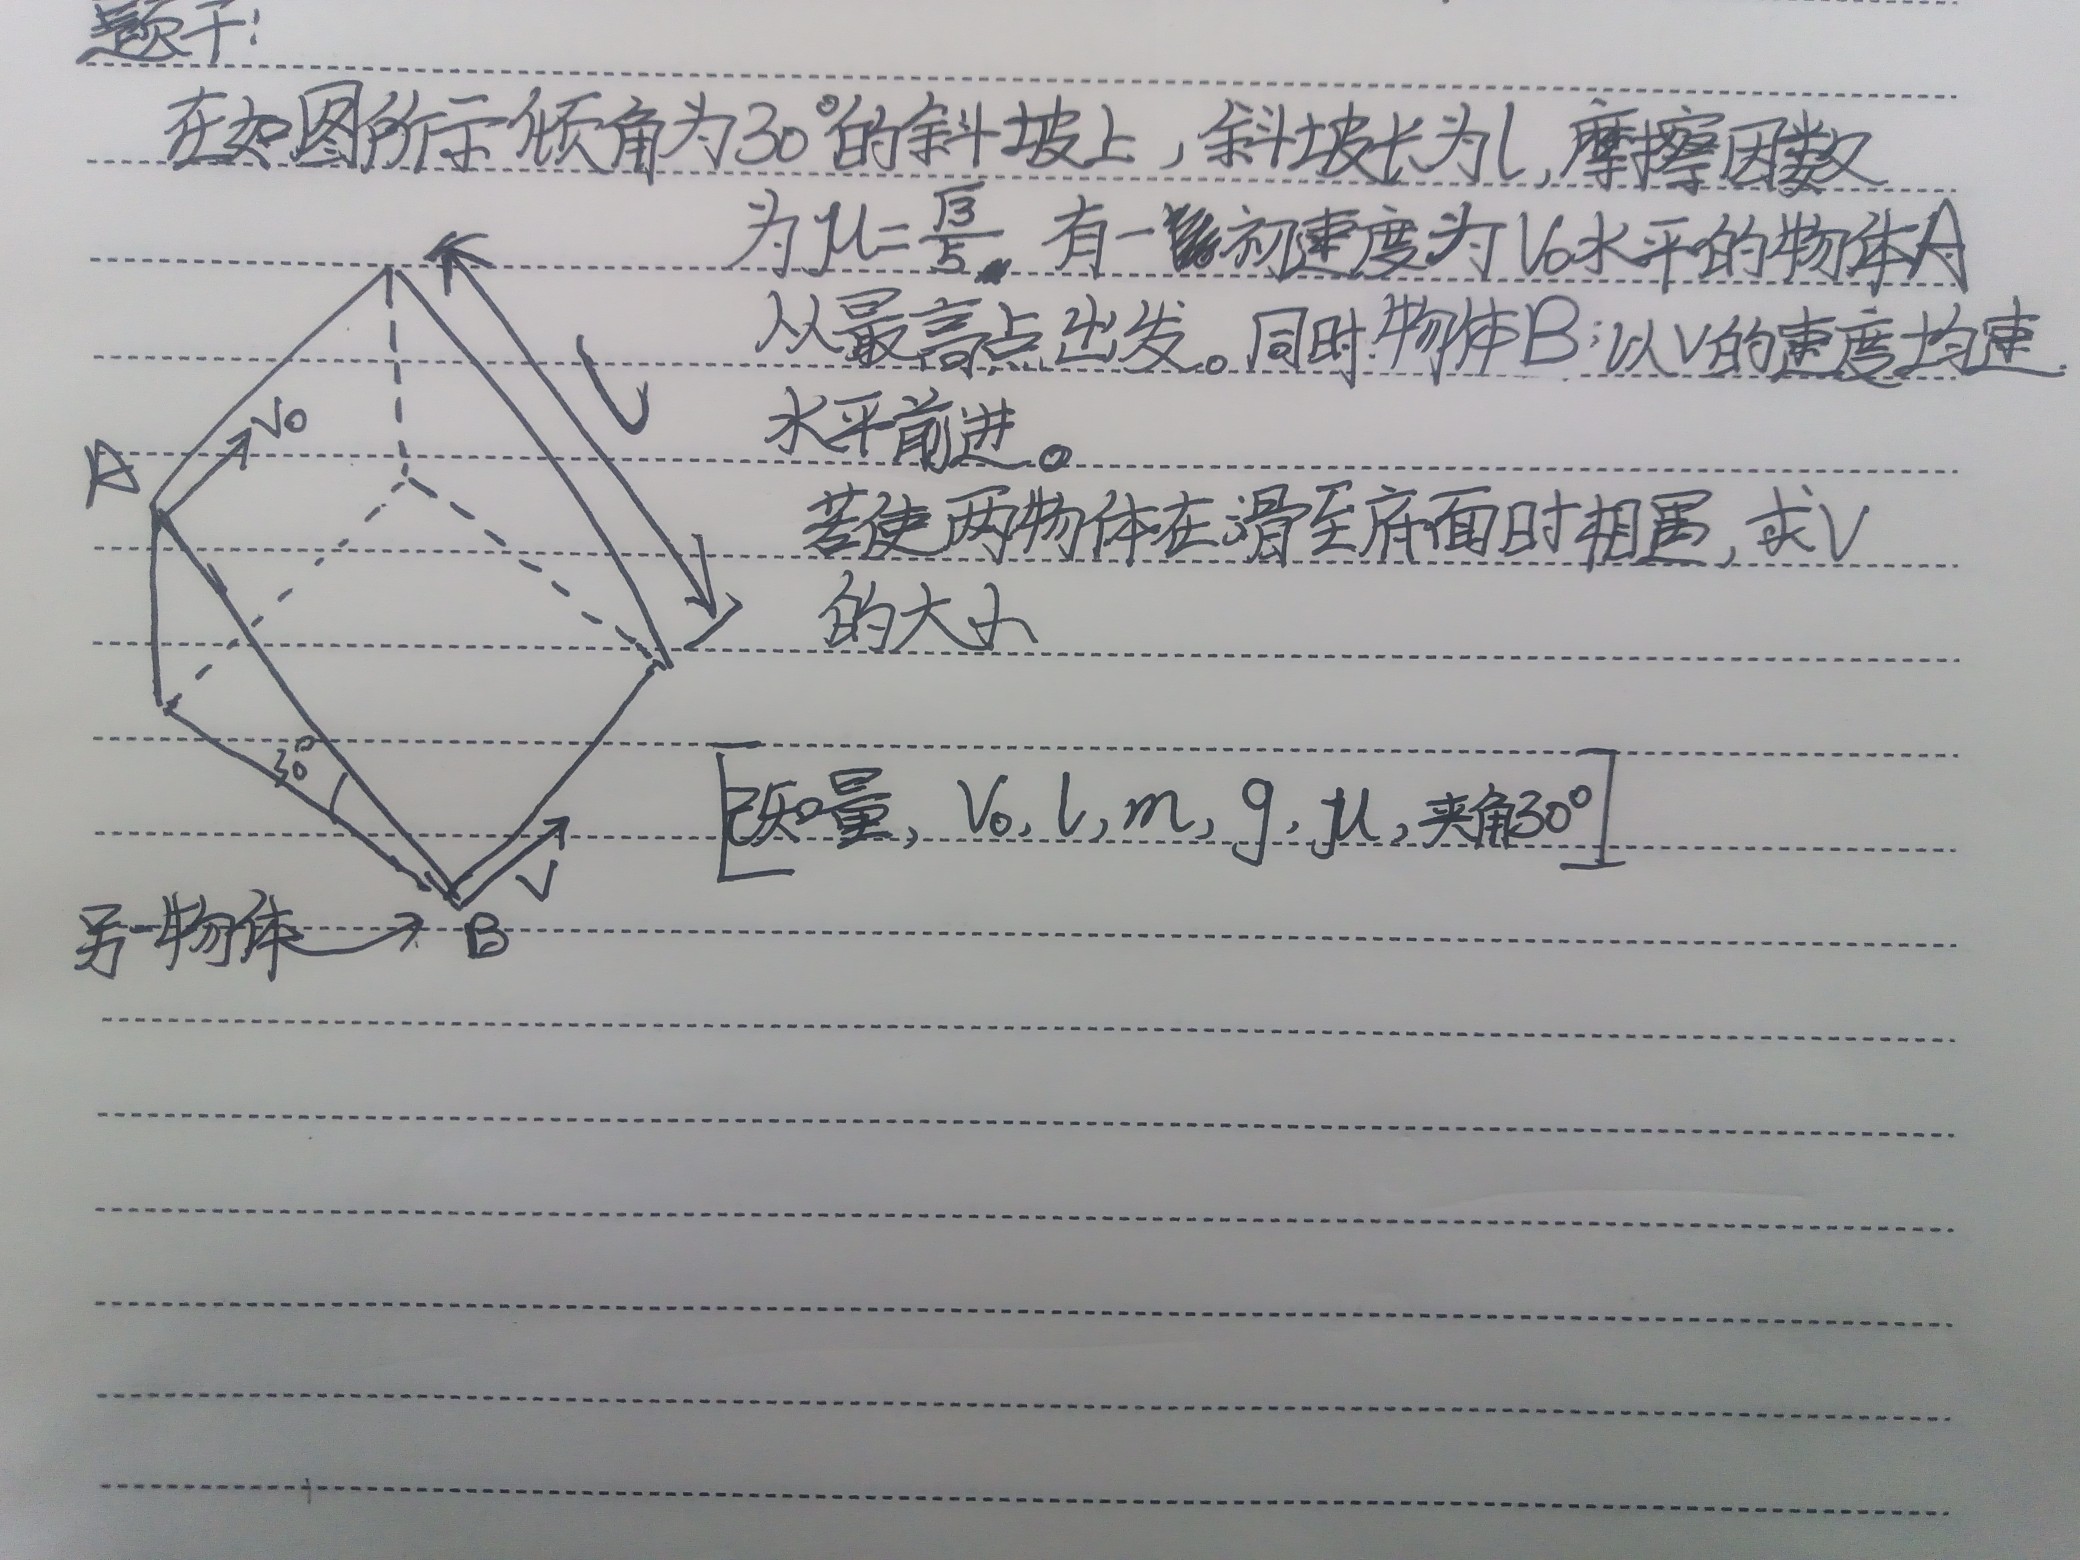 题干:
在如图所示倾角为30°的斜坡上,斜坡长为l,摩擦因数
为μ=√3/5. 有一初速度为V₀水平的物体A
从最高点出发。同时物体B以V的速度均速
水平前进。
若使两物体在滑至底面时相遇,求V
的大小
L
V₀
A
30°
[已知量, V₀, l, m, g, μ, 夹角30°]
V
另一物体→
B